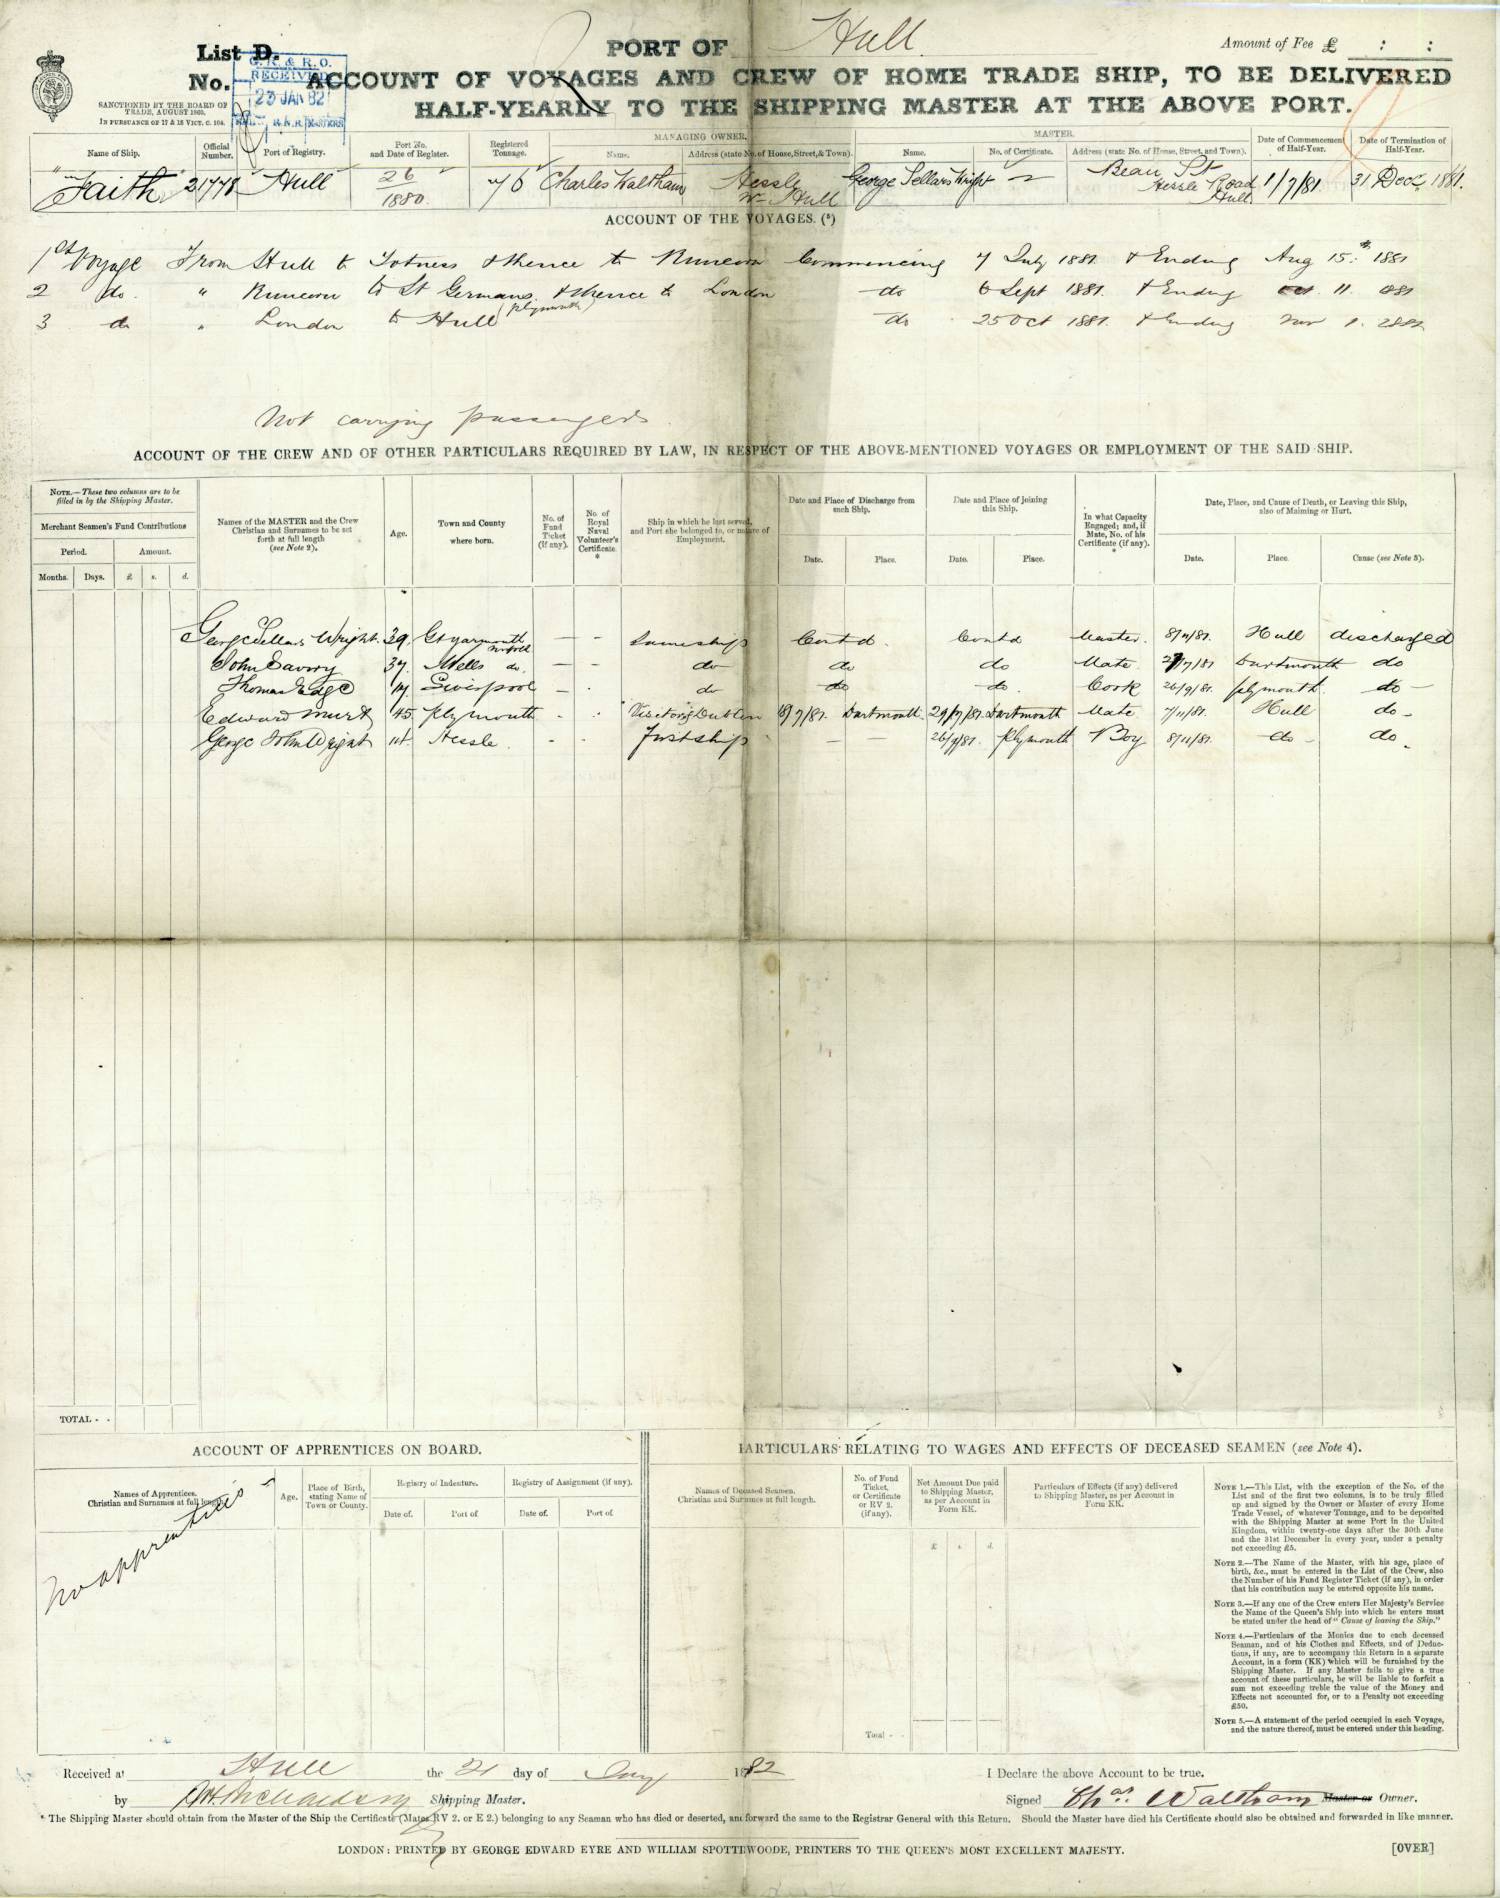 List D.
PORT OF Hull
Amount of Fee £ : :
No.
G. R. & R. O.
RECEIVED
23 JAN 82
ACCOUNT OF VOYAGES AND CREW OF HOME TRADE SHIP, TO BE DELIVERED
HALF-YEARLY TO THE SHIPPING MASTER AT THE ABOVE PORT.
SANCTIONED BY THE BOARD OF
TRADE, AUGUST 1860.
IN PURSUANCE OF 17 & 18 VICT. C. 104.
MANAGING OWNER.
MASTER.
Name of Ship.
Official Number.
Port of Registry.
Port No. and Date of Register.
Registered Tonnage.
Name.
Address (state No. of House, Street, & Town).
Name.
No. of Certificate.
Address (state No. of House, Street, and Town).
Date of Commencement of Half-Year.
Date of Termination of Half-Year.
Faith 21778 Hull 26/1880 76 Charles Waltham Hessle Nr Hull George Sellars Wright Bean St Hessle Road Hull 1/7/81 31 Dec. 1881.
ACCOUNT OF THE VOYAGES. (5)
1st Voyage From Hull to Totness & thence to Runcorn Commencing 7 July 1881 & Ending Aug 15th 1881
2 do. " Runcorn to St Germans & thence to London do 6 Sept 1881. & Ending Oct. 11. 1881
(plymouth)
3 do " London to Hull do 25 Oct 1881. & Ending Nov 1881
Not carrying passengers
ACCOUNT OF THE CREW AND OF OTHER PARTICULARS REQUIRED BY LAW, IN RESPECT OF THE ABOVE-MENTIONED VOYAGES OR EMPLOYMENT OF THE SAID SHIP.
NOTE.—These two columns are to be filled in by the Shipping Master.
Merchant Seamen's Fund Contributions
Period.
Amount.
Months.
Days.
£
s.
d.
Names of the MASTER and the Crew
Christian and Surnames to be set
forth at full length
(see Note 2).
Age.
Town and County
where born.
No. of Fund Ticket (if any).
No. of Royal Naval Volunteer's Certificate. *
Ship in which he last served,
and Port she belonged to, or nature of
Employment.
Date and Place of Discharge from such Ship.
Date.
Place.
Date and Place of joining this Ship.
Date.
Place.
In what Capacity Engaged; and, if Mate, No. of his Certificate (if any). *
Date, Place, and Cause of Death, or Leaving this Ship, also of Maiming or Hurt.
Date.
Place.
Cause (see Note 3).
George Sellars Wright. 39. Gt yarmouth Norfolk — — Same ship Cont'd. Cont'd Master. 8/11/81. Hull discharged
John Savory 37. Wells do. — — do do do Mate. 29/7/81 Dartmouth do
Thomas Edge 19. Liverpool — - do do do. Cook 26/9/81. plymouth. do —
Edward Murt 45. plymouth - - Dublin 18/7/81. Dartmouth. 29/7/81. Dartmouth Mate 7/11/81. Hull do —
George John Wright 14. Hessle. - - First ship — — 26/9/81. plymouth Boy 8/11/81. do — do —
TOTAL - -
ACCOUNT OF APPRENTICES ON BOARD.
PARTICULARS RELATING TO WAGES AND EFFECTS OF DECEASED SEAMEN (see Note 4).
Names of Apprentices.
Christian and Surnames at full length.
Age.
Place of Birth, stating Name of Town or County.
Registry of Indenture.
Date of.
Port of
Registry of Assignment (if any).
Date of.
Port of
No apprentices
Names of Deceased Seamen.
Christian and Surnames at full length.
No. of Fund Ticket, or Certificate or RV 2. (if any).
Net Amount Due paid to Shipping Master, as per Account in Form KK.
£
s.
d.
Particulars of Effects (if any) delivered to Shipping Master, as per Account in Form KK.
Total -
NOTE 1.—This List, with the exception of the No. of the
List and of the first two columns, is to be truly filled
up and signed by the Owner or Master of every Home
Trade Vessel, of whatever Tonnage, and to be deposited
with the Shipping Master at some Port in the United
Kingdom, within twenty-one days after the 30th June
and the 31st December in every year, under a penalty
not exceeding £5.
NOTE 2.—The Name of the Master, with his age, place of
birth, &c., must be entered in the List of the Crew, also
the Number of his Fund Register Ticket (if any), in order
that his contribution may be entered opposite his name.
NOTE 3.—If any one of the Crew enters Her Majesty's Service
the Name of the Queen's Ship into which he enters must
be stated under the head of "Cause of leaving the Ship."
NOTE 4.—Particulars of the Monies due to each deceased
Seaman, and of his Clothes and Effects, and of Deduc-
tions, if any, are to accompany this Return in a separate
Account, in a form (KK) which will be furnished by the
Shipping Master. If any Master fails to give a true
account of these particulars, he will be liable to forfeit a
sum not exceeding treble the value of the Money and
Effects not accounted for, or to a Penalty not exceeding
£50.
NOTE 5.—A statement of the period occupied in each Voyage,
and the nature thereof, must be entered under this heading.
Received at Hull the 21 day of Jany 1882
I Declare the above Account to be true.
by Richardson Shipping Master.
Signed Chas. Waltham Master or Owner.
* The Shipping Master should obtain from the Master of the Ship the Certificate (Mates, RV 2. or E 2.) belonging to any Seaman who has died or deserted, and forward the same to the Registrar General with this Return. Should the Master have died his Certificate should also be obtained and forwarded in like manner.
LONDON: PRINTED BY GEORGE EDWARD EYRE AND WILLIAM SPOTTISWOODE, PRINTERS TO THE QUEEN'S MOST EXCELLENT MAJESTY.
[OVER]